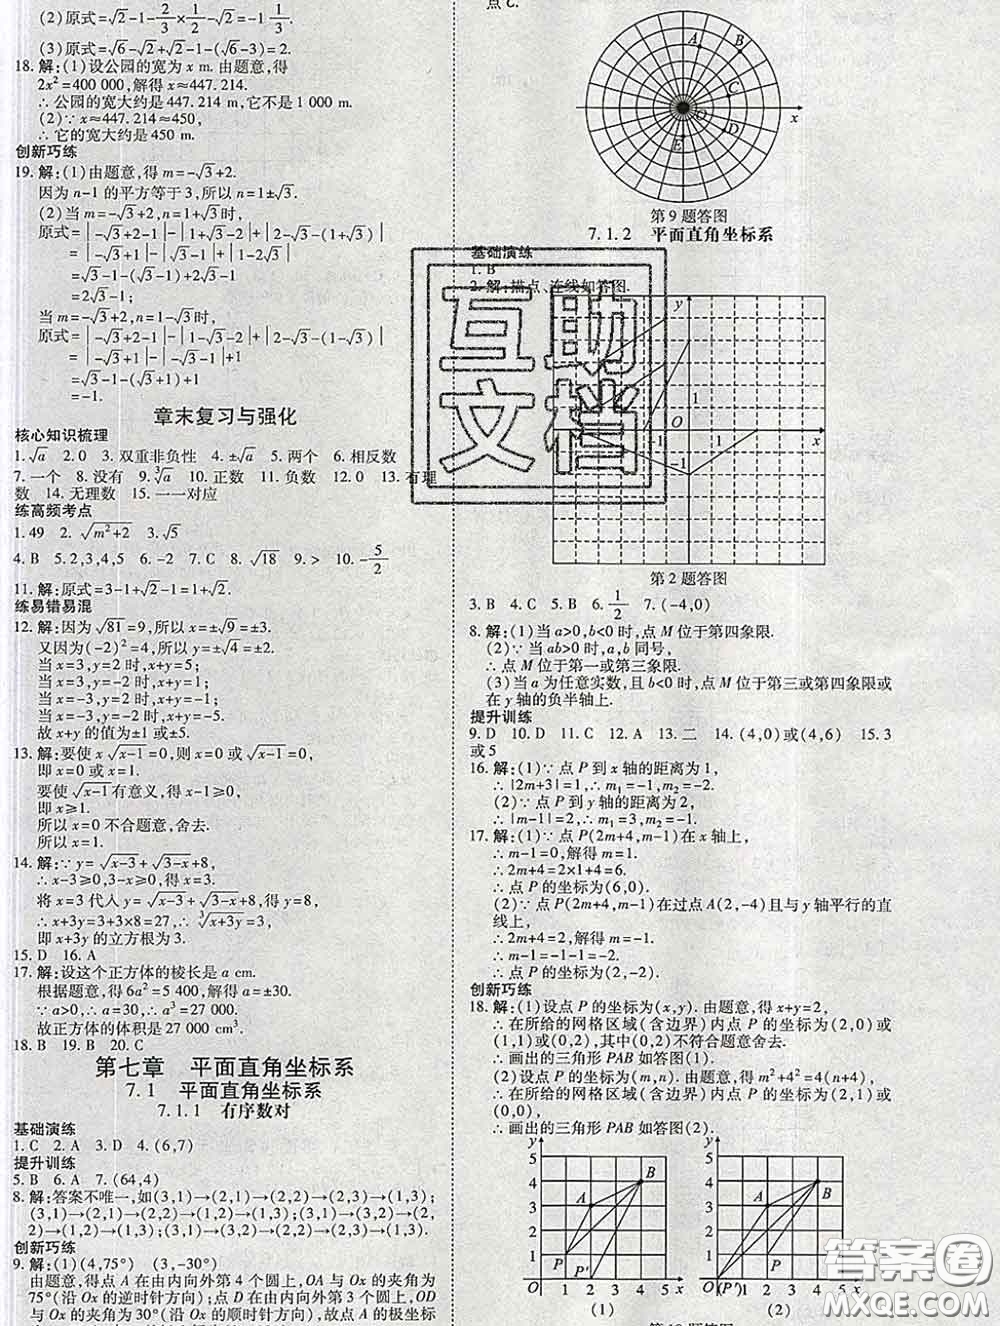 (2)原式=√2-1-2/3×1/2-√2=-1-1/3.
(3)原式=√6-√2+√2-1-(√6-3)=2.
18. 解:(1)设公园的宽为 x m. 由题意,得
2x²=400 000,解得 x≈447.214.
∴公园的宽大约是 447.214 m,它不是 1 000 m.
(2)∵x≈447.214≈450,
∴它的宽大约是 450 m.
创新巧练
19. 解:(1)由题意,得 m=-√3+2.
因为 n-1 的平方等于 3,所以 n=1±√3.
(2)当 m=-√3+2,n=1+√3时,
原式=|-√3+2-1|-|1+√3-1|+|2-√3-(1+√3)|
=|-√3+1|-|√3|+|1-2√3|
=√3-1-√3+2√3-1
=2√3-1;
当 m=-√3+2,n=1-√3时,
原式=|-√3+2-1|-|1-√3-1|+|2-√3-(1-√3)|
=|-√3+1|-|-√3|+1
=√3-1-(√3)+1
=-1.
章末复习与强化
核心知识梳理
1.√a 2.0 3. 双重非负性 4.±√a 5. 两个 6. 相反数
7. 一个 8. 没有 9.∛a 10. 正数 11. 负数 12.0 13. 有理
数 14. 无理数 15. 一一对应
练高频考点
1.49 2.√(m²+2) 3.√5
4. B 5.2,3,4,5 6.-2 7. C 8.√18 9.> 10.-5/2
11. 解:原式=3-1+√2-1=1+√2.
练易错易混
12. 解:因为√81=9,所以 x=±√9=±3.
又因为(-2)²=4,所以 y=±√4=±2.
当 x=3,y=2 时,x+y=5;
当 x=3,y=-2 时,x+y=1;
当 x=-3,y=2 时,x+y=-1;
当 x=-3,y=-2 时,x+y=-5.
故 x+y 的值为±1 或±5.
13. 解:要使 x√(x-1)=0,则 x=0 或√(x-1)=0,
即 x=0 或 x=1.
要使√(x-1)有意义,得 x-1≥0,
即 x≥1.
所以 x=0 不合题意,舍去.
所以 x=1.
14. 解:∵y=√(x-3)+√(3-x)+8,
∴x-3≥0,3-x≥0,得 x=3.
将 x=3 代入 y=√(x-3)+√(3-x)+8,得 y=8.
∴x+3y=3+3×8=27,∴∛(x+3y)=3,
即 x+3y 的立方根为 3.
15. D 16. A
17. 解:设这个正方体的棱长是 a cm.
根据题意,得 6a²=5 400,解得 a=±30.
∵a>0,∴a=30,∴a³=27 000.
故正方体的体积是 27 000 cm³.
18. B 19. B 20. C
第七章 平面直角坐标系
7.1 平面直角坐标系
7.1.1 有序数对
基础演练
1. C 2. A 3. D 4.(6,7)
提升训练
5. B 6. A 7.(64,4)
8. 解:答案不唯一,如(3,1)→(2,1)→(2,2)→(2,3)→(1,3);
(3,1)→(2,1)→(2,2)→(1,2)→(1,3);(3,1)→(3,2)→(2,
2)→(1,2)→(1,3);(3,1)→(3,2)→(2,2)→(2,3)→(1,3).
创新巧练
9. 解:(1)(4,75°) (3,-30°)
由题意,得点 A 在由内向外第 4 个圆上,OA 与 Ox 的夹角为
75°(沿 Ox 的逆时针方向);点 D 在由内向外第 3 个圆上,OD
与 Ox 的夹角为 30°(沿 Ox 的顺时针方向),故点 A 的极坐标
点 C.
A
B
C
O
D
E
x
第 9 题答图
7.1.2 平面直角坐标系
基础演练
1. B
2. 解:描点、连线如答图.
y
1
O
-1
1
x
-1
第 2 题答图
3. B 4. C 5. B 6.1/2 7.(-4,0)
8. 解:(1)当 a>0,b<0 时,点 M 位于第四象限.
(2)∵当 ab>0 时,a,b 同号,
∴点 M 位于第一或第三象限.
(3)当 a 为任意实数,且 b<0 时,点 M 位于第三或第四象限或
在 y 轴的负半轴上.
提升训练
9. D 10. D 11. C 12. A 13. 二 14.(4,0)或(4,6) 15. 3
或 5
16. 解:(1)∵点 P 到 x 轴的距离为 1,
∴|2m+3|=1,∴m₁=-1,m₂=-2.
(2)∵点 P 到 y 轴的距离为 2,
∴|m-1|=2,∴m₁=3,m₂=-1.
17. 解:(1)∵点 P(2m+4,m-1)在 x 轴上,
∴m-1=0,解得 m=1.
∴2m+4=2×1+4=6.
∴点 P 的坐标为(6,0).
(2)∵点 P(2m+4,m-1)在过点 A(2,-4)且与 y 轴平行的直
线上,
∴2m+4=2,解得 m=-1.
∴m-1=-1-1=-2.
∴点 P 的坐标为(2,-2).
创新巧练
18. 解:(1)设点 P 的坐标为(x,y). 由题意,得 x+y=2,
∴在所给的网格区域(含边界)内点 P 的坐标为(2,0)或
(1,1)或(0,2),其中(0,2)不符合题意舍去.
∴画出的三角形 PAB 如答图(1).
(2)设点 P 的坐标为(m,n). 由题意,得 m²+4²=4(4+n),
∴在所给的网格区域(含边界)内点 P 的坐标为(2,1)或
(0,0),
∴画出的三角形 PAB 如答图(2).
y
5
4
3
2
1
O
A
B
P
P'
1 2 3 4 5 x
(1)
y
5
4
3
2
1
O(P')
A
B
P
1 2 3 4 5 x
(2)
互助
文档
答案圈
MXQE.COM